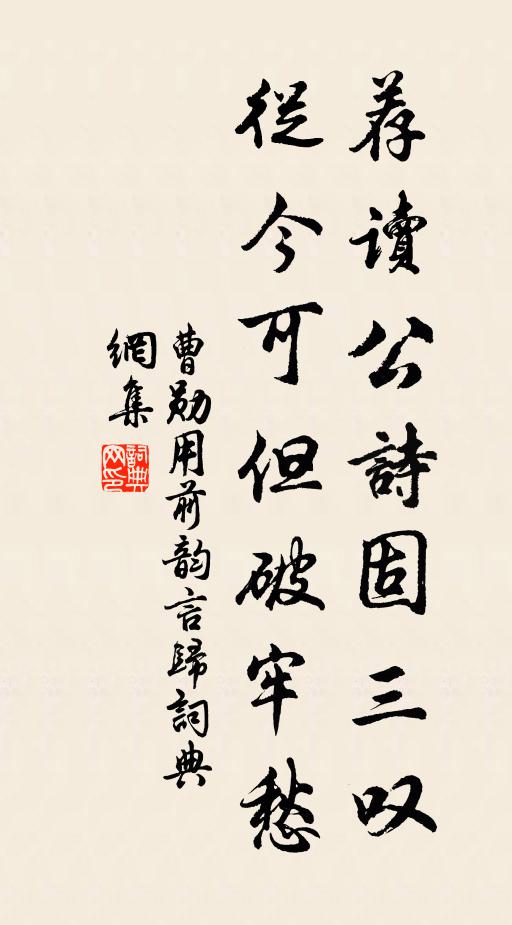 荐讀公詩固三叹
從今可但破牢愁
曹勛用前韵言歸詞典
網集
詞典網印